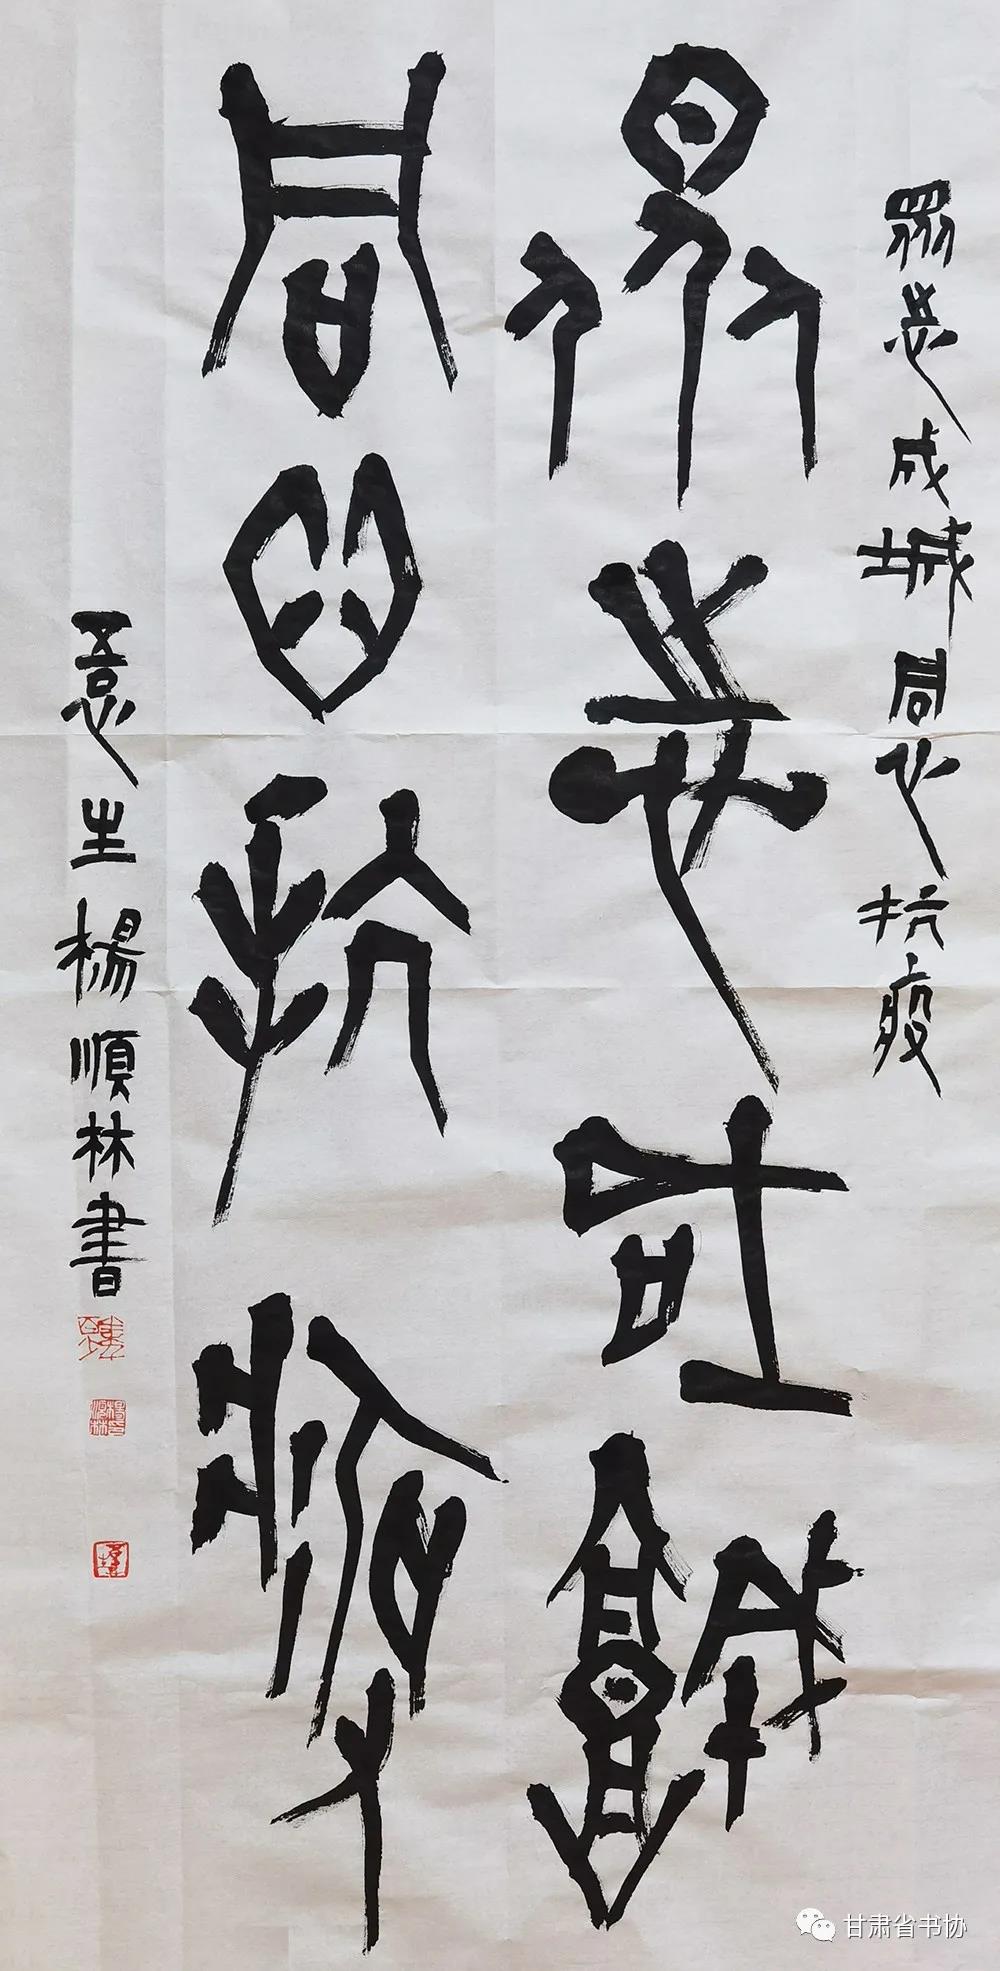 眾志成城同心抗疫
眾志成城
同心抗疫
生楊順林書
甘肃省书协